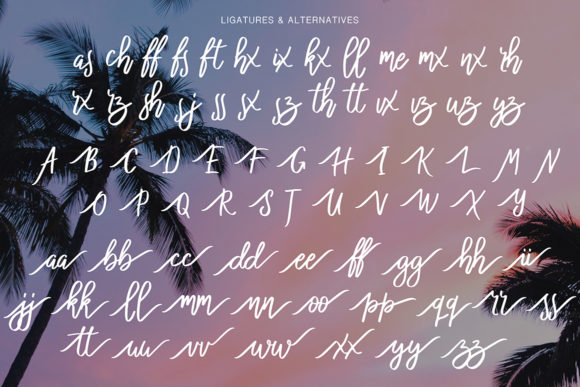 LIGATURES & ALTERNATIVES
as ch ff fs ft hx ix kx ll me mx nx rh
rx rz sh sj ss sx sz th tt vx vz uz yz
A B C D E F G H I K L M N
O P Q R S J U V W X Y
aa bb cc dd ee ff gg hh ii
jj kk ll mm nn oo pp qq rr ss
tt uu vv ww xx yy zz